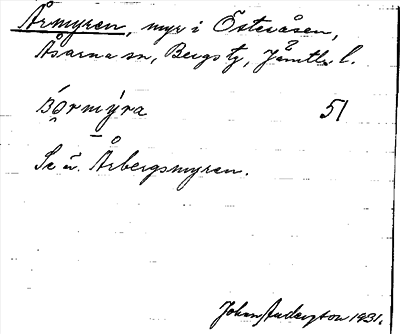 Årmyren, myr i Österåsen,
Åsarna sn, Bergs tg, Jämtl. l.
Bo̜rmy̆ra 51
Se ä. Årbergsmyren.
Johan Anderzton 1931.